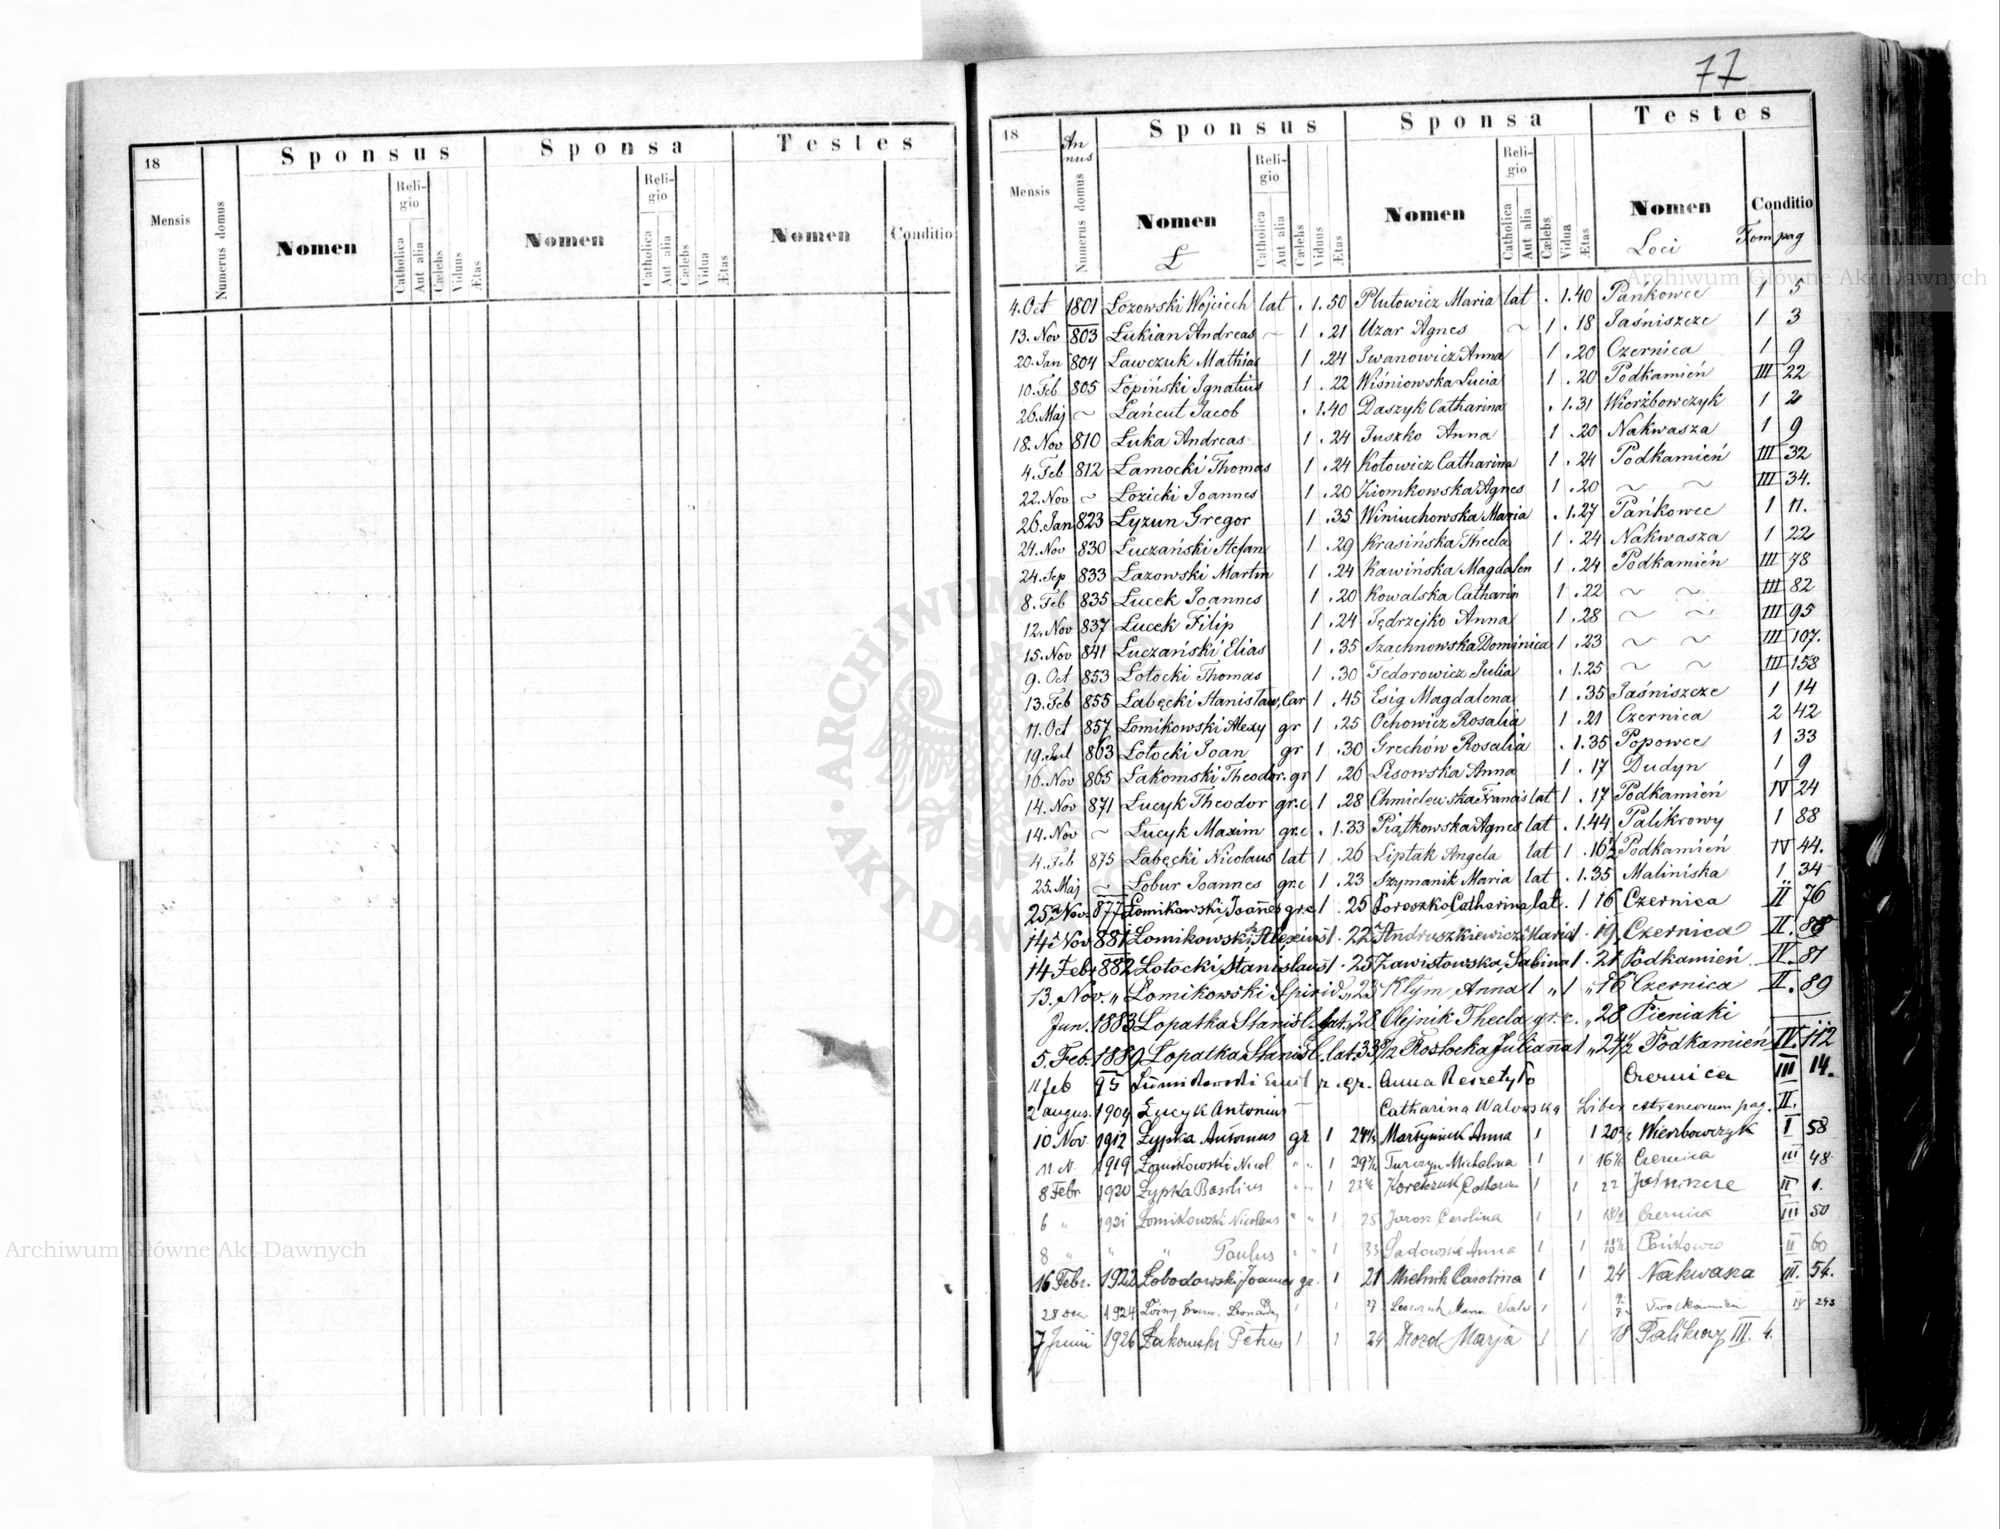 77
18 Sponsus Sponsa Testes
Mensis Numerus domus Nomen Religio Catholica Aut alia Cælebs Viduus Ætas Nomen Religio Catholica Aut alia Cælebs Vidua Ætas Nomen Conditio
18 Annus Sponsus Sponsa Testes
Mensis Numerus domus Nomen Religio Catholica Aut alia Cælebs Viduus Ætas Nomen Religio Catholica Aut alia Cælebs Vidua Ætas Nomen Conditio
Ł Loci Tom pag
4. Oct 1801 Łozowski Wojciech lat . 1. 50 Plutowicz Maria lat . 1. 40 Pańkowce 1 5
13. Nov 803 Łukian Andreas ~ 1 . 21 Uzar Agnes ~ 1 . 18 Jaśniszcze 1 3
20. Jan 804 Ławczuk Mathias 1 . 24 Iwanowicz Anna 1 . 20 Czernica 1 9
10. Feb 805 Łopiński Ignatius 1 . 22 Wiśniowska Lucia 1 . 20 Podkamień III 22
26. Maj ~ Łańcut Jacob . 1. 40 Daszyk Catharina . 1. 31 Wierzbowczyk 1 2
18. Nov 810 Łuka Andreas 1 . 24 Juszko Anna 1 . 20 Nakwasza 1 9
4. Feb 812 Łamocki Thomas 1 . 24 Kotowicz Catharina 1 . 24 Podkamień III 32
22. Nov ~ Łozicki Joannes 1 . 20 Ziomkowska Agnes 1 . 20 ~ ~ III 34.
26. Jan 823 Łyzun Gregor 1 . 35 Winiuchowska Maria . 1. 27 Pańkowce 1 11.
24. Nov 830 Łuczański Stefan 1 . 29 Krasińska Thecla 1 . 24 Nakwasza 1 22
24. Sep 833 Łazowski Martin 1 . 24 Kawińska Magdalen 1 . 24 Podkamień III 78
8. Feb 835 Łucek Joannes 1 . 20 Kowalska Catharin 1 . 22 ~ ~ III 82
12. Nov 837 Łucek Filip 1 . 24 Jędrzejko Anna 1 . 28 ~ ~ III 95
15. Nov 841 Łuczański Elias 1 . 35 Szachnowska Dominica 1 . 23 ~ ~ III 107.
9. Oct 853 Łotocki Thomas 1 . 30 Fedorowicz Julia . 1. 25 ~ ~ III 158
13. Feb 855 Łabęcki Stanisław, Car 1 . 45 Esig Magdalena 1 . 35 Jaśniszcze 1 14
11. Oct 857 Łomikowski Alexy gr 1 . 25 Ochowicz Rosalia 1 . 21 Czernica 2 42
19. Jul 863 Łotocki Joan gr 1 . 30 Grechów Rosalia . 1. 35 Popowce 1 33
16. Nov 865 Łakomski Theodor. gr 1 . 26 Lisowska Anna 1 . 17 Dudyn 1 9
14. Nov 871 Łucyk Theodor gr.c 1 . 28 Chmielewska Francis lat 1 . 17 Podkamień IV 24
14. Nov ~ Łucyk Maxim gr.c . 1. 33 Piątkowska Agnes lat . 1. 44 Palikrowy 1 88
4. Feb 875 Łabęcki Nicolaus lat 1 . 26 Liptak Angela lat 1 . 16 1/2 Podkamień IV 44.
25. Maj ~ Łobur Joannes gr.c 1 . 23 Szymanik Maria lat . 1. 35 Maliniska 1 34
25 Nov. 877 Łomikowski Joannes gr.c 1 . 25 Joroszko Catharina lat. 1 16 Czernica II 76
14 Nov 881 Łomikowski Alexius 1 . 22 Andruszkiewicz Maria 1 . 19. Czernica II. 88
14 Febr 882 Łotocki Stanislaus 1 . 25 Zawistowska Sabina 1 . 21 Podkamień IV. 81
13. Nov. " Łomikowski Spirid. " 23 Kłym Anna 1 " 1 " 16 Czernica II. 89
Jun. 1883 Łopatka Stanisl. lat. " 28 Olejnik Thecla gr. c. " 28 Pieniaki
5. Feb. 1889 Łopatka Stanisl. lat. 33 1/2 Rostocka Julianna 1 " 24 1/2 Podkamień IV. 112
11 feb 95 Łomikowski Emil r. gr. Anna Reszetyło Czernica III 14.
2 augus. 1904 Łucyk Antonius Catharina Walowska Liber extraneorum pag. II.
10 Nov 1912 Łypka Antonius gr 1 24 Martyniuk Anna 1 1 20 Wierzbowczyk I 58
11 N. 1919 Łomikowski Nicol " " 1 29 Turczyn Michalina 1 1 16 Czernica III 48
8 Febr 1920 Łypka Basilius " " 1 Koretczuk 1 1 22 II 1.
6 " 1921 Łomikowski Nicolaus " " 1 25 Jarosz Carolina 1 1 18 Czernica III 50
8 " " " Paulus " " 1 33 Sadowska Anna 1 1 Pańkowce II 60
16 Febr. 1922 Łobodowski Joannes gr. 1 21 Mielnik Carolina 1 1 24 Nakwasza III. 54.
28 1924 1 27 1 1 IV 243
7 Junii 1926 Łakomski Petrus 1 1 24 Drozd Marja 1 1 18 Palikrowy III. 4.
Archiwum Główne Akt Dawnych
Archiwum Główne Akt Dawnych
ARCHIWUM AKT DAWNYCH